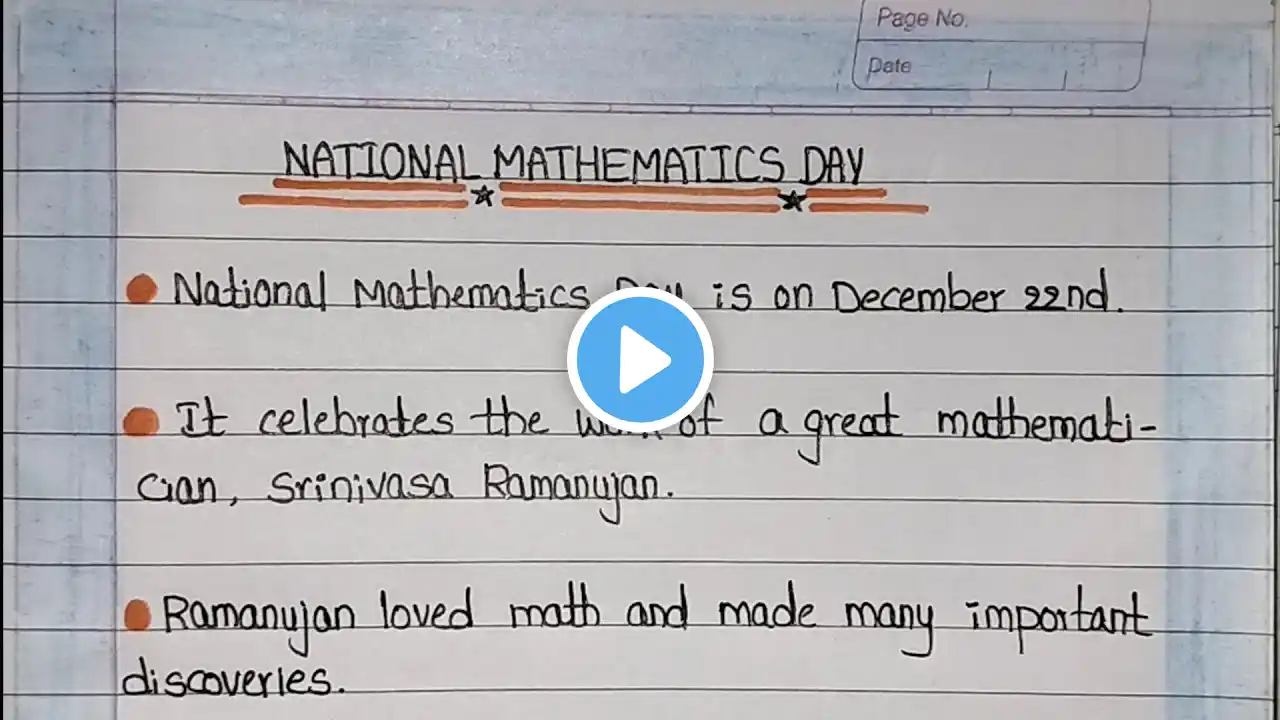 Page No.
Date
NATIONAL MATHEMATICS DAY
National Mathematics Day is on December 22nd.
It celebrates the work of a great mathemati-
cian, Srinivasa Ramanujan.
Ramanujan loved math and made many important
discoveries.